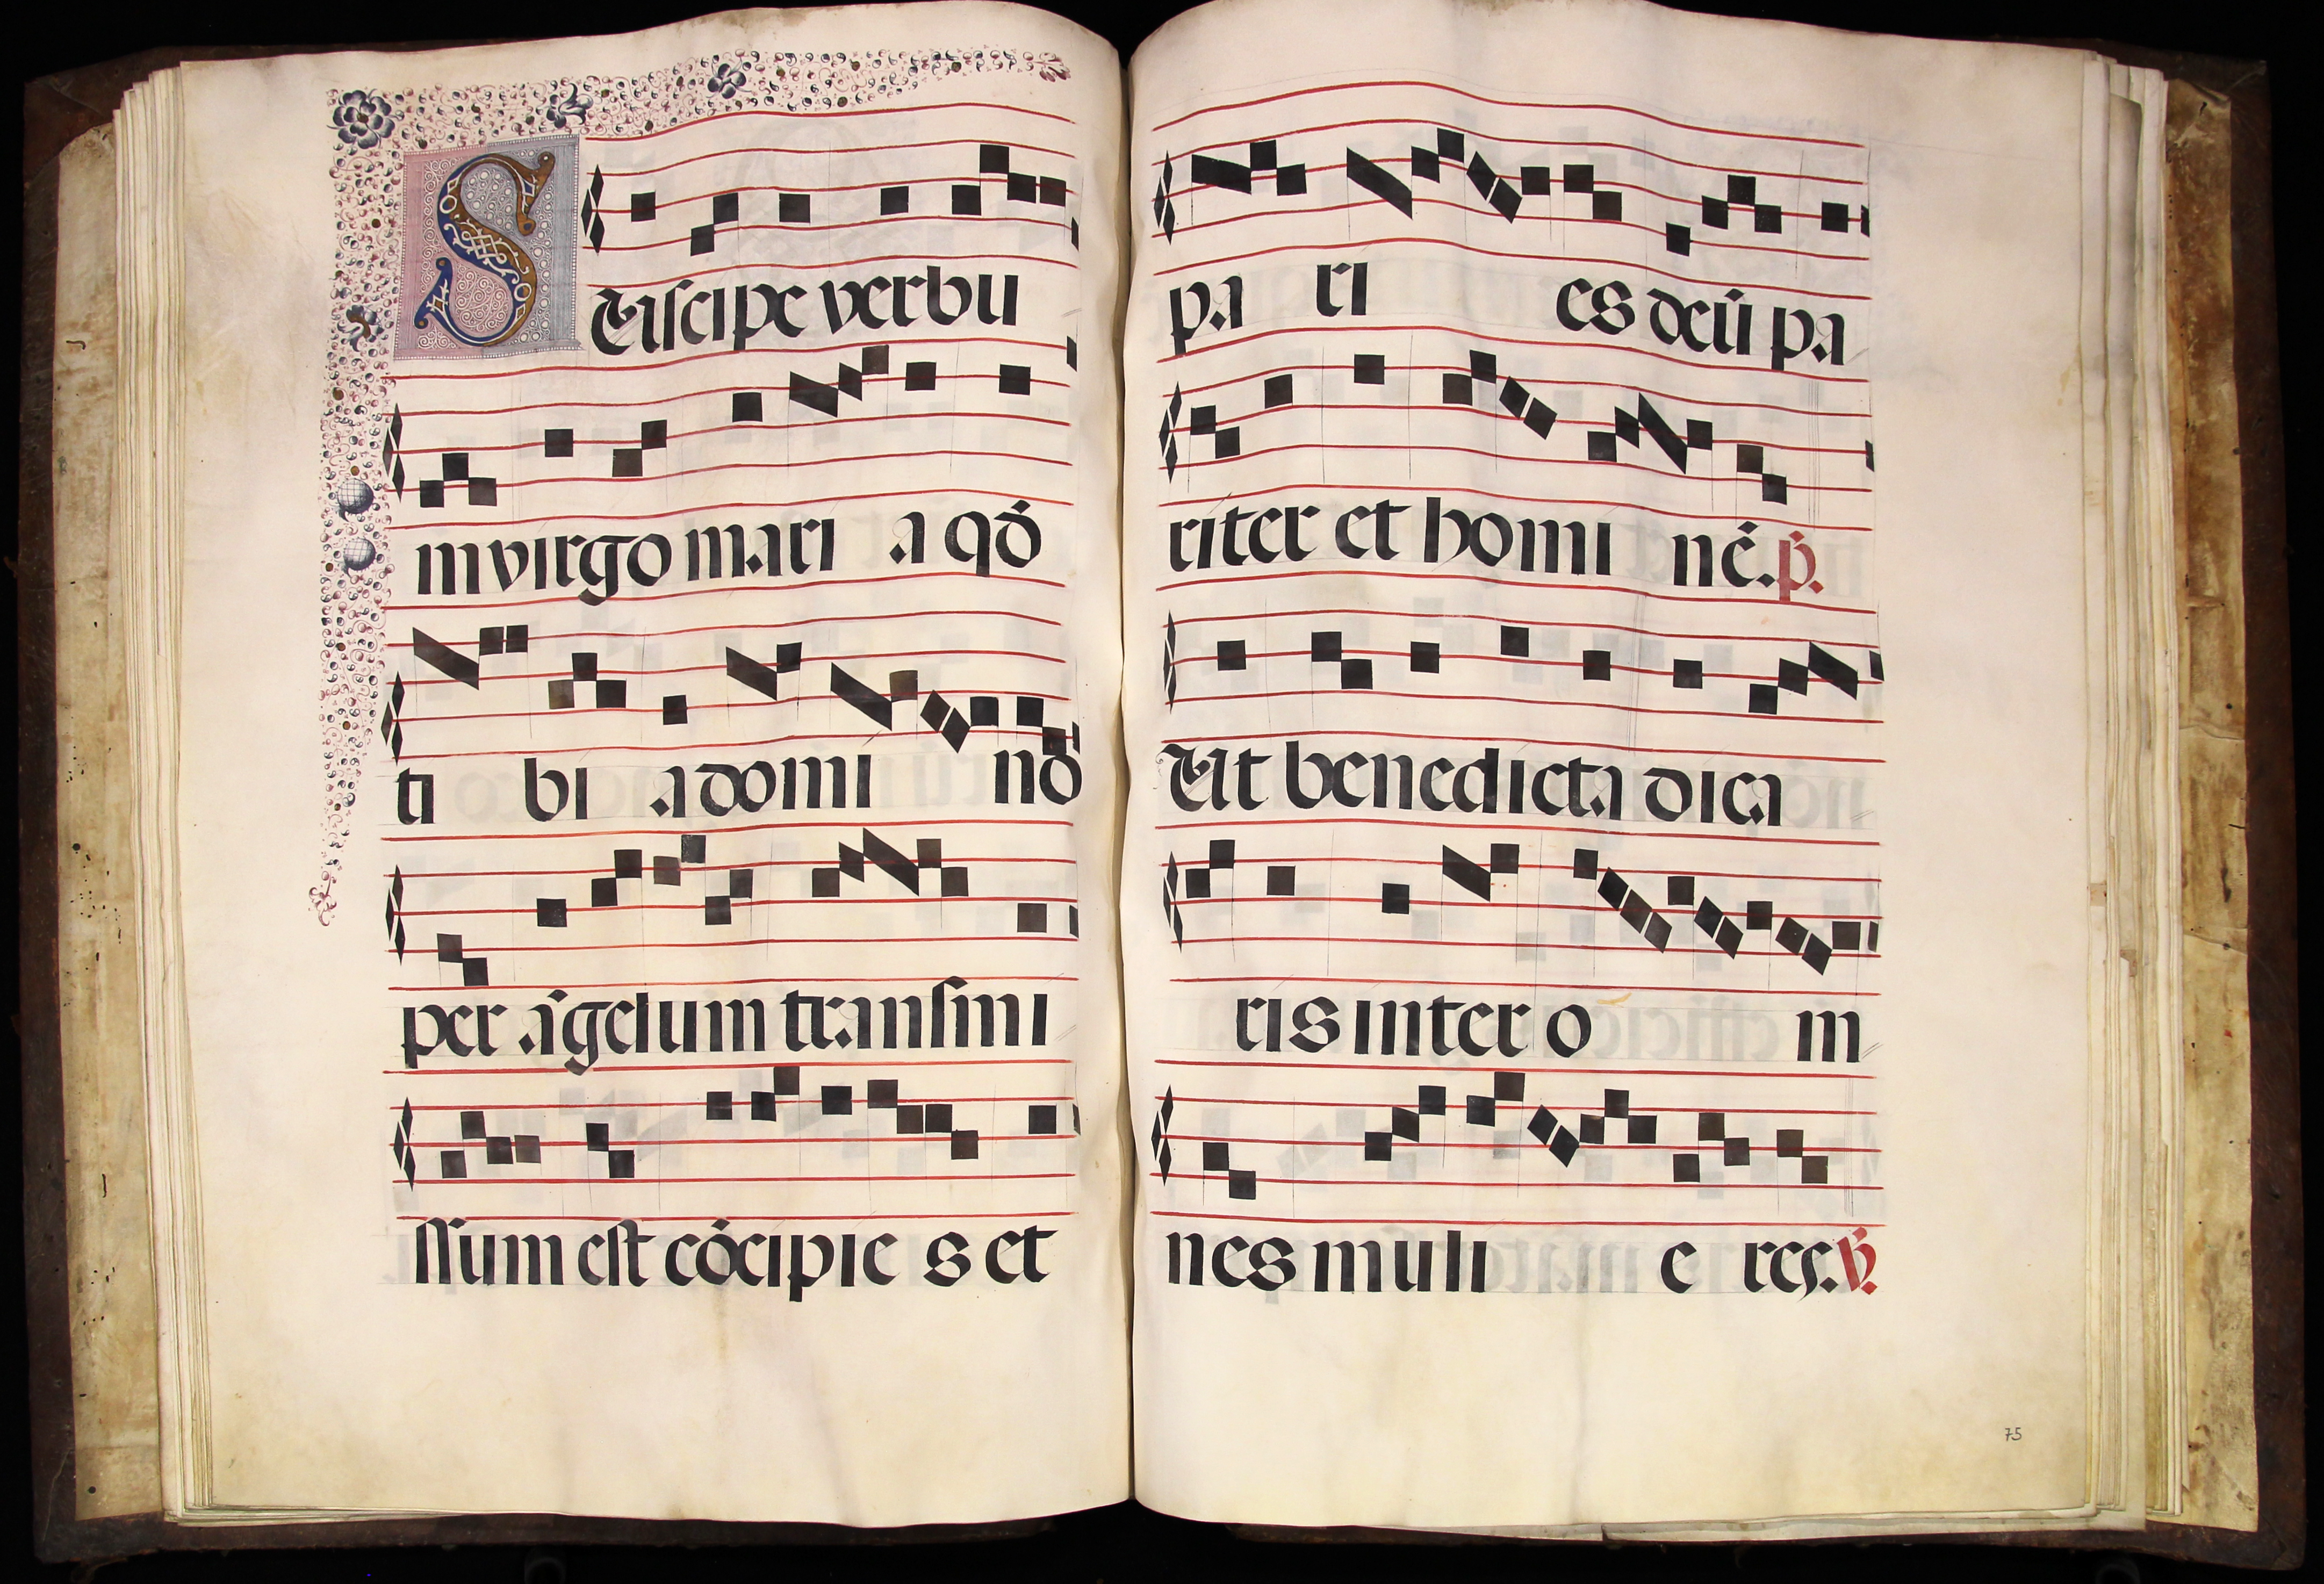 SUiscipe verbu
m virgo mari a qđ
ti bi a domi nō
per āgelum transmi
ssum est cōcipie s et
pa ri es deū pa
riter et homi nē. p̄.
Ut benedicta dica
ris inter o m
nes muli e res. ℣.
75